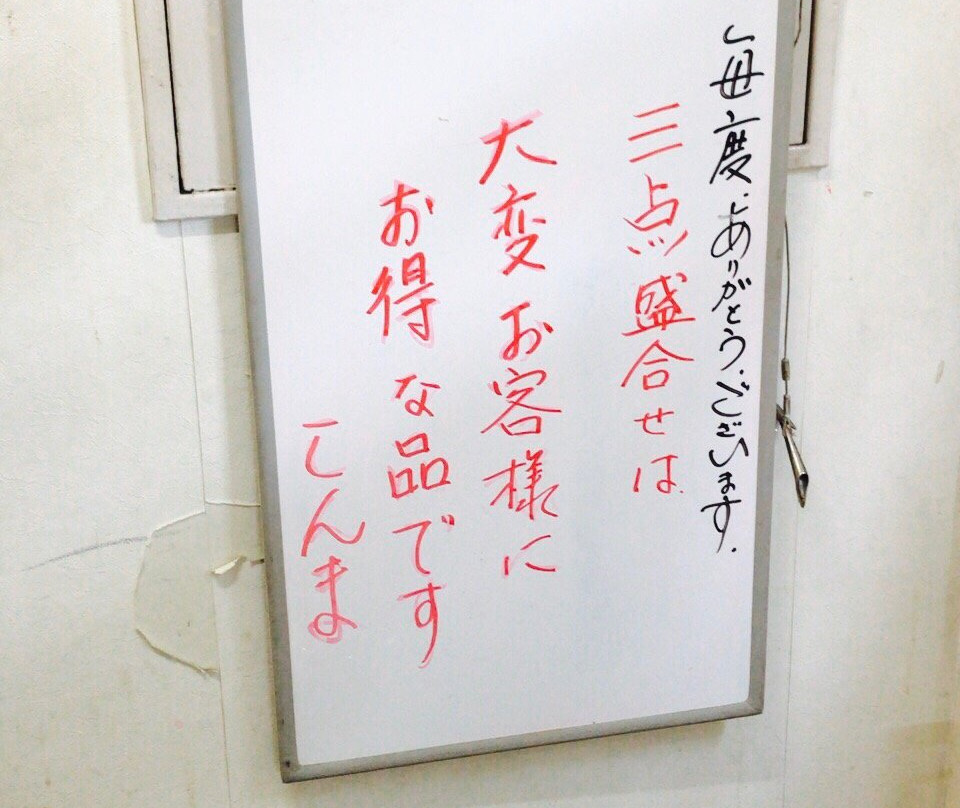 毎度.ありがとう.ございます.
三点盛合せは
大変お客様に
お得な品です
こんま